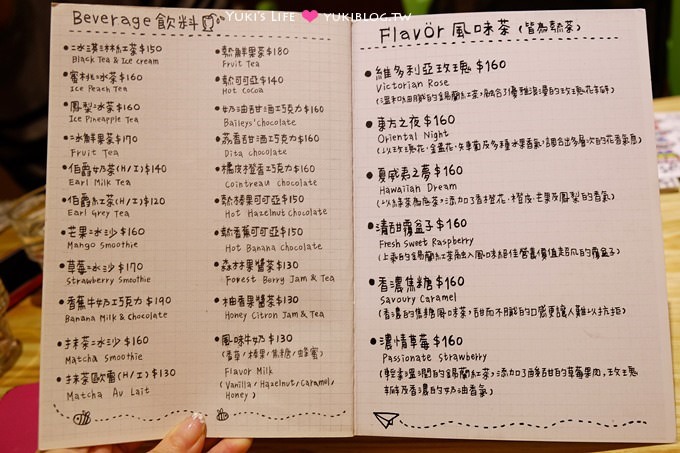 YUKI'S LIFE ♥ YUKIBLOG.TW
Beverage 飲料
•冰淇淋紅茶$150
Black Tea & Ice cream
•蜜桃冰茶$160
Ice Peach Tea
•鳳梨冰茶$160
Ice Pineapple Tea
•冰鮮果茶$170
Fruit Tea
•伯爵奶茶(H/I)$140
Earl Milk Tea
•伯爵紅茶(H/I)$120
Earl Grey Tea
•芒果冰沙$160
Mango Smoothie
•草莓冰沙$170
Strawberry Smoothie
•香蕉牛奶巧克力$190
Banana Milk & Chocolate
•抹茶冰沙$160
Matcha Smoothie
•抹茶歐蕾(H/I)$130
Matcha Au Lait
•熱鮮果茶$180
Fruit Tea
•熱可可亞$140
Hot Cocoa
•奶油甜酒巧克力$160
Baileys'chocolate
•荔香甜酒巧克力$160
Dita chocolate
•橘皮橙香巧克力$160
Cointreau chocolate
•熱榛果可可亞$150
Hot Hazelnut Chocolate
•熱香蕉可可亞$150
Hot Banana Chocolate
•森林果醬茶$130
Forest Berry Jam & Tea
•柚香果醬茶$130
Honey Citron Jam & Tea
•風味牛奶$130
(香草/榛果/焦糖/蜂蜜)
Flavor Milk
(Vanilla/Hazelnut/Caramel/
Honey)
Flavor 風味茶 (皆為熱茶)
•維多利亞玫瑰 $160
Victorian Rose
(溫和細膩的錫蘭紅茶,融合了優雅浪漫的玫瑰花香)
•東方之夜 $160
Oriental Night
(以玫瑰花、金盞花、矢車菊及多種水果香氣,調合出多層次的花香氣息)
•夏威夷之夢 $160
Hawaiian Dream
(以綠茶為底茶,添加了香橙花、橙皮、芒果及鳳梨的香氣)
•清甜覆盆子 $160
Fresh Sweet Raspberry
(上等的錫蘭紅茶融入風味絕佳營養價值超凡的覆盆子)
•香濃焦糖 $160
Savoury Caramel
(香濃的焦糖風味茶,甜而不膩的口感更讓人難以抗拒)
•濃情草莓 $160
Passionate Strawberry
(輕柔溫潤的錫蘭紅茶,添加了酸甜的草莓果肉,玫瑰
花瓣及香濃的奶油香氣)